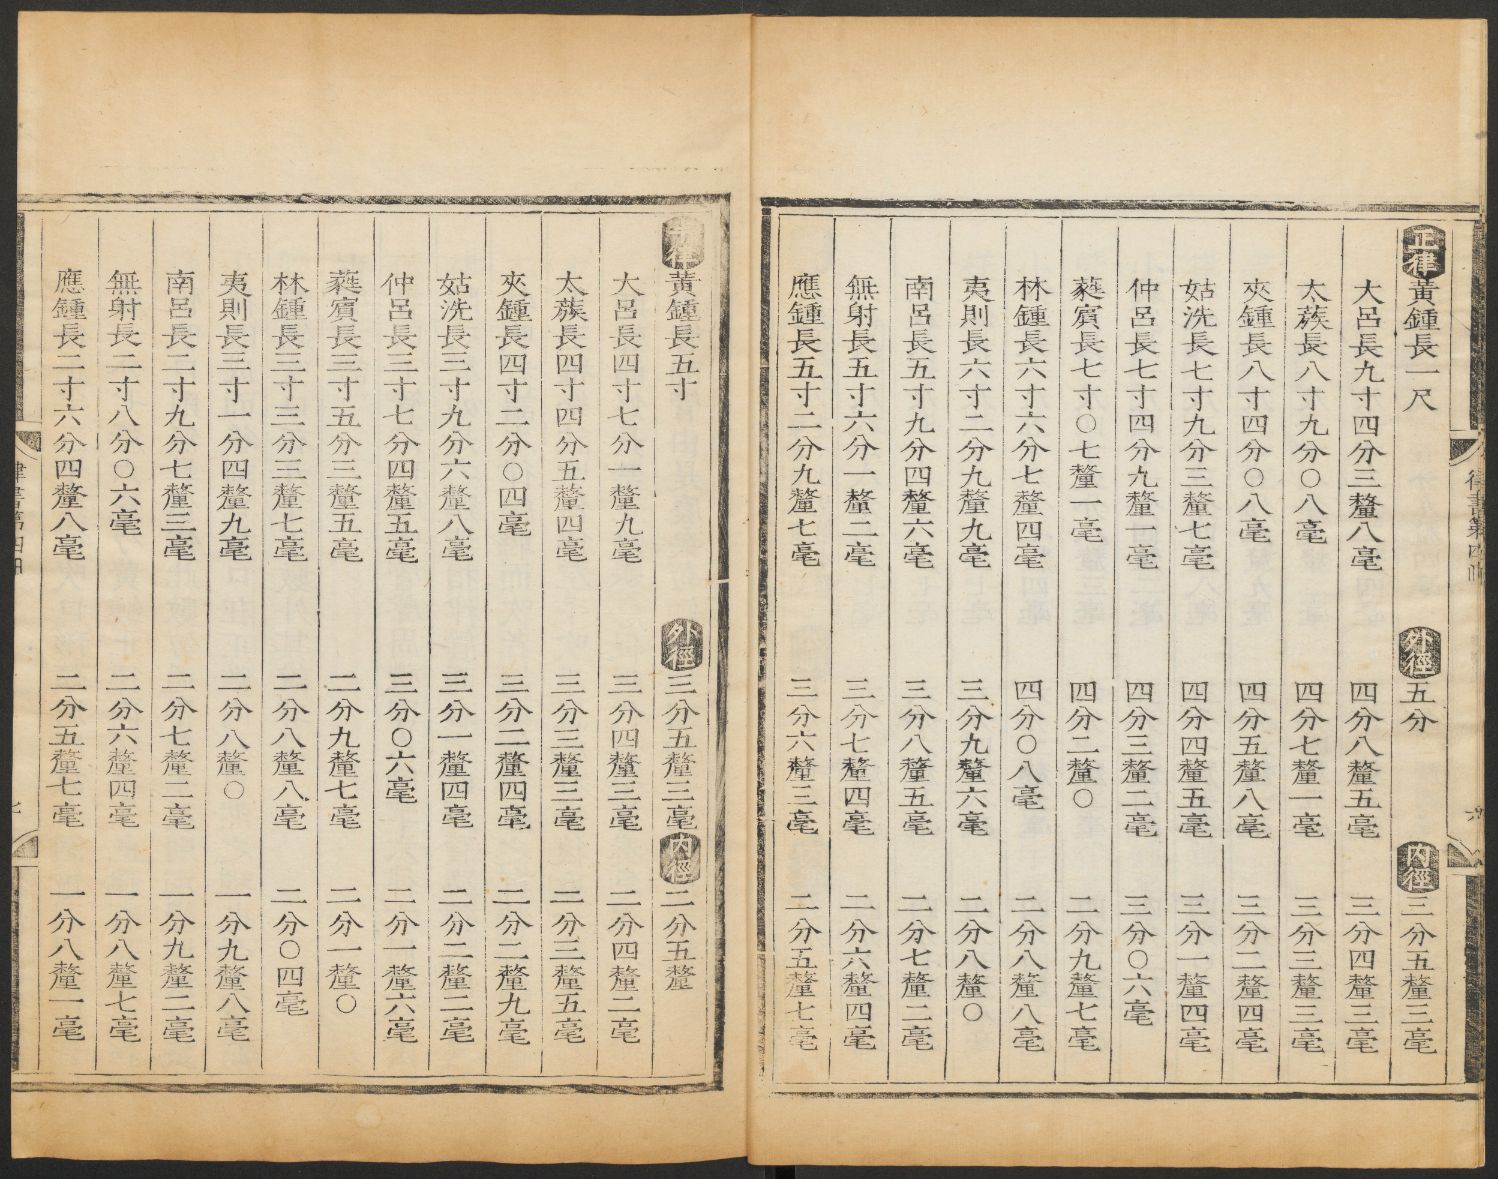 律書第四
六
正律黃鍾長一尺 外徑五分 內徑三分五釐三毫
大呂長九寸四分三釐八毫 四分八釐五毫 三分四釐三毫
太蔟長八寸九分〇八毫 四分七釐一毫 三分三釐三毫
夾鍾長八寸四分〇八毫 四分五釐八毫 三分二釐四毫
姑洗長七寸九分三釐七毫 四分四釐五毫 三分一釐四毫
仲呂長七寸四分九釐一毫 四分三釐二毫 三分〇六毫
蕤賓長七寸〇七釐一毫 四分二釐〇 二分九釐七毫
林鍾長六寸六分七釐四毫 四分〇八毫 二分八釐八毫
夷則長六寸二分九釐九毫 三分九釐六毫 二分八釐〇
南呂長五寸九分四釐六毫 三分八釐五毫 二分七釐二毫
無射長五寸六分一釐二毫 三分七釐四毫 二分六釐四毫
應鍾長五寸二分九釐七毫 三分六釐三毫 二分五釐七毫
律黃鍾長五寸 外徑三分五釐三毫 內徑二分五釐
大呂長四寸七分一釐九毫 三分四釐三毫 二分四釐二毫
太蔟長四寸四分五釐四毫 三分三釐三毫 二分三釐五毫
夾鍾長四寸二分〇四毫 三分二釐四毫 二分二釐九毫
姑洗長三寸九分六釐八毫 三分一釐四毫 二分二釐二毫
仲呂長三寸七分四釐五毫 三分〇六毫 二分一釐六毫
蕤賓長三寸五分三釐五毫 二分九釐七毫 二分一釐〇
林鍾長三寸三分三釐七毫 二分八釐八毫 二分〇四毫
夷則長三寸一分四釐九毫 二分八釐〇 一分九釐八毫
南呂長二寸九分七釐三毫 二分七釐二毫 一分九釐二毫
無射長二寸八分〇六毫 二分六釐四毫 一分八釐七毫
應鍾長二寸六分四釐八毫 二分五釐七毫 一分八釐一毫
律書第四